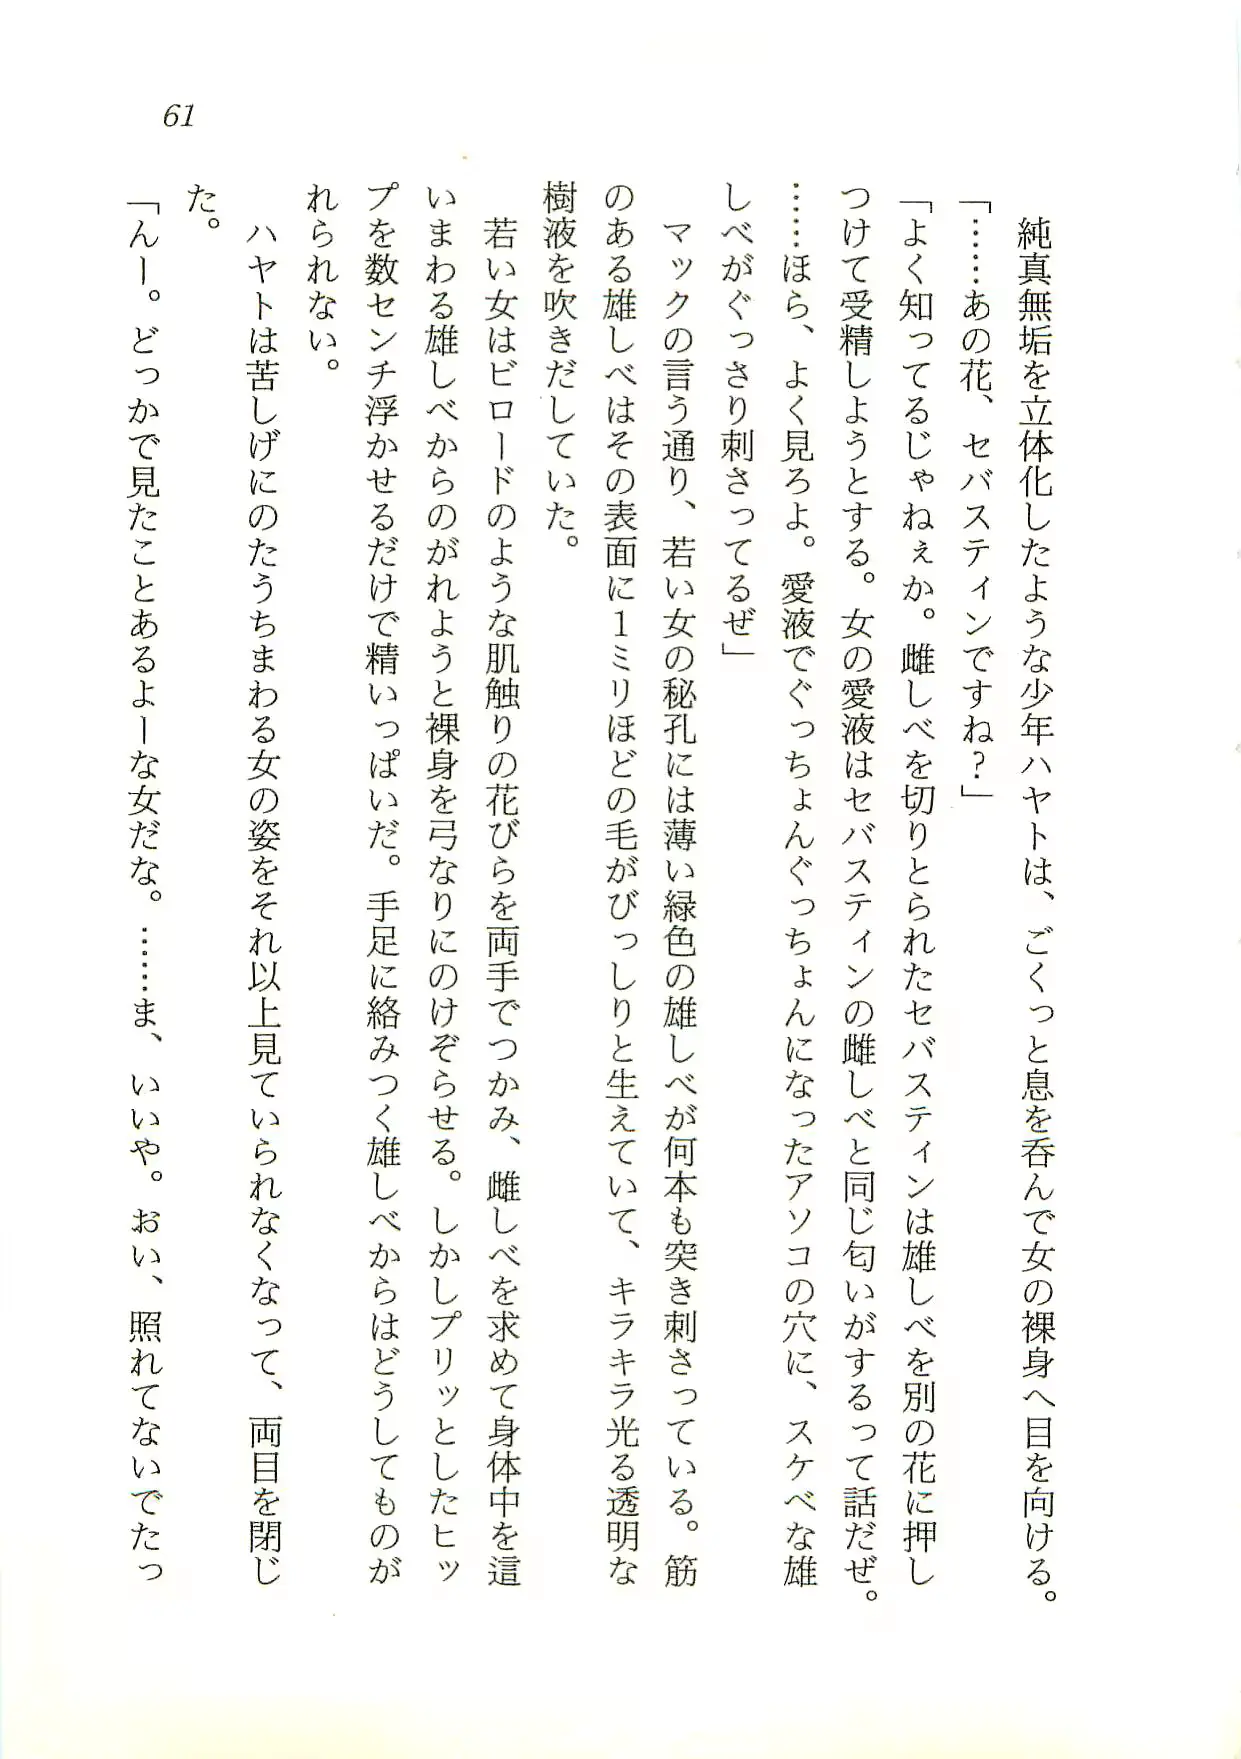 61
純真無垢を立体化したような少年ハヤトは、ごくっと息を呑んで女の裸身へ目を向ける。
「……あの花、セバスティンですね?」
「よく知ってるじゃねぇか。雌しべを切りとられたセバスティンは雄しべを別の花に押し
つけて受精しようとする。女の愛液はセバスティンの雌しべと同じ匂いがするって話だぜ。
……ほら、よく見ろよ。愛液でぐっちょんぐっちょんになったアソコの穴に、スケベな雄
しべがぐっさり刺さってるぜ」
マックの言う通り、若い女の秘孔には薄い緑色の雄しべが何本も突き刺さっている。筋
のある雄しべはその表面に1ミリほどの毛がびっしりと生えていて、キラキラ光る透明な
樹液を吹きだしていた。
若い女はビロードのような肌触りの花びらを両手でつかみ、雌しべを求めて身体中を這
いまわる雄しべからのがれようと裸身を弓なりにのけぞらせる。しかしプリッとしたヒッ
プを数センチ浮かせるだけで精いっぱいだ。手足に絡みつく雄しべからはどうしてものが
れられない。
ハヤトは苦しげにのたうちまわる女の姿をそれ以上見ていられなくなって、両目を閉じ
た。
「んー。どっかで見たことあるよーな女だな。……ま、いいや。おい、照れてないでたっ